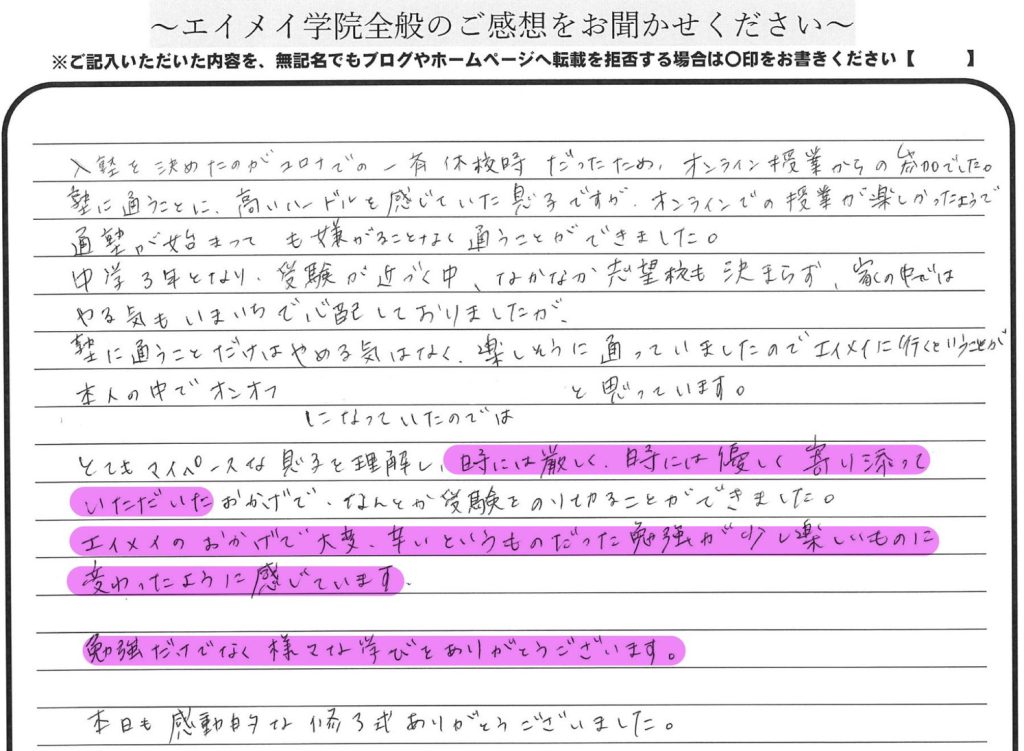 ～エイメイ学院全般のご感想をお聞かせください～
※ご記入いただいた内容を、無記名でもブログやホームページへ転載を拒否する場合は〇印をお書きください【　　】
入塾を決めたのがコロナでの一斉休校時だったため、オンライン授業からの参加でした。
塾に通うことに、高いハードルを感じていた息子ですが、オンラインでの授業が楽しかったようで
通塾が始まっても嫌がることなく通うことができました。
中学3年となり、受験が近づく中、なかなか志望校も決まらず、家の中では
やる気もいまいちで心配しておりましたが、
塾に通うことだけはやめる気はなく、楽しそうに通っていましたのでエイメイに行くということが
本人の中でオンオフ　　　と思っています。
になっていたのでは
とてもマイペースな息子を理解し、時には厳しく、時には優しく寄り添って
いただいたおかげで、なんとか受験をのり切ることができました。
エイメイのおかげで大変、辛いというものだった勉強が少し楽しいものに
変わったように感じています。
勉強だけでなく様々な学びをありがとうございます。
本日も感動的な修了式ありがとうございました。